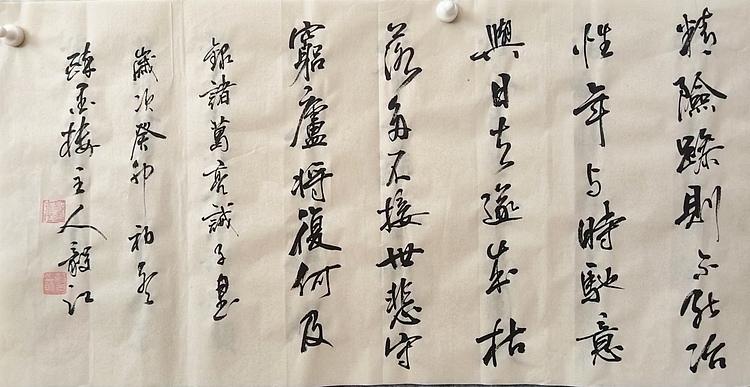 精險躁則不能冶
性年与時馳意
與日去遂成枯
落多不接世悲守
窮廬將復何及
録諸葛亮誡子書
歲次癸卯初
醉墨楼主人毅江